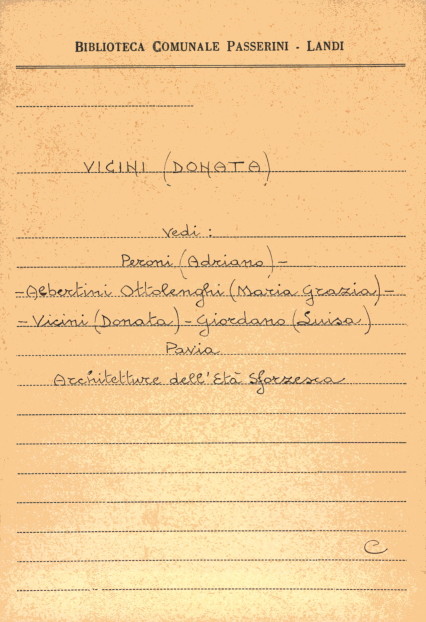 BIBLIOTECA COMUNALE PASSERINI - LANDI
VICINI (DONATA)
Vedi :
Peroni (Adriano) -
- Albertini Ottolenghi (Maria Grazia) -
- Vicini (Donata) - Giordano (Luisa)
Pavia
Architetture dell'Età Sforzesca
C